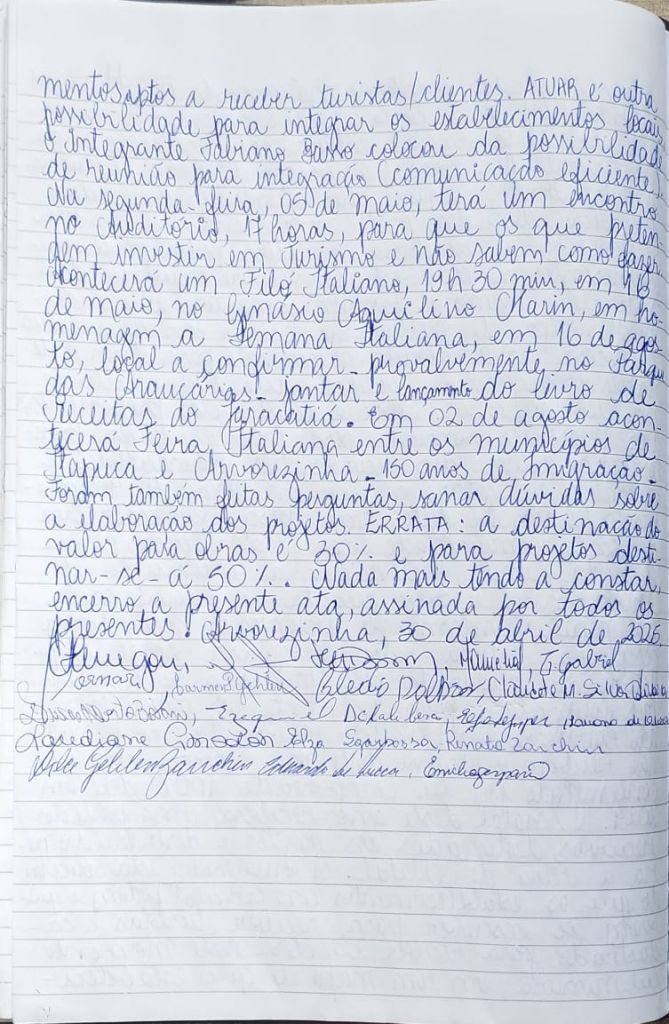 mentos aptos a receber turistas/clientes. ATUAR é outra
possibilidade para integrar os estabelecimentos locais
O Integrante Fabiano Basso colocou da possibilidad
de reunião para integração (comunicação eficiente.
Na segunda-feira, 05 de maio, terá um encontro
no Auditório, 17 horas, para que os que preten
dem investir em Turismo e não sabem como fazer
Acontecerá um Filó Italiano, 19h 30 min, em 16
de maio, no Ginásio Aquelino Marin, em ho
menagem a Semana Italiana, em 16 de agos
to, local a confirmar - provalvemente no Parque
das Araucárias - jantar e lançamento do livro de
receitas do Jaracatiá. Em 02 de agosto acon-
tecerá Feira Italiana entre os municípios de
Itapuca e Arvorezinha - 150 anos de Imigração.
Foram também feitas perguntas, sanar dúvidas sobre
a elaboração dos projetos. ERRATA: a destinação do
valor para obras é 30% e para projetos desti-
nar-se-á 50%. Nada mais tendo a constar,
encerro a presente ata, assinada por todos os
presentes. Arvorezinha, 30 de abril de 2025.
G. Gabriel
Clecio Dalbosco, Claudete M. Silva
Ezequiel
Elza Sgarbossa, Renato Zanchin
Zanchin Eduardo de Lucca, Emilio